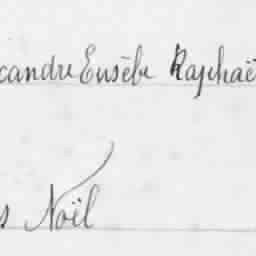 xandre Eusèbe Raphaë
s Noël